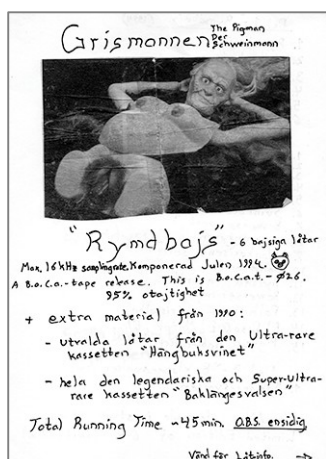 Grismannen The Pigman
Der
Schweinmann
"Rymdbajs" - 6 bajsiga låtar
Max. 16kHz samplingrate. Komponerad Julen 1994.
A B.o.C.a.-tape release. This is B.o.C.a.t. - Ø26.
95% otajtighet
+ extra material från 1990:
- utvalda låtar från den Ultra-rare
kassetten "Hängbuksvinet"
- hela den legendariska och Super-Ultra-
rare kassetten "Baklängesvalsen"
Total Running Time ~45min. O.B.S. ensidig
Vänd för låtinfo. →